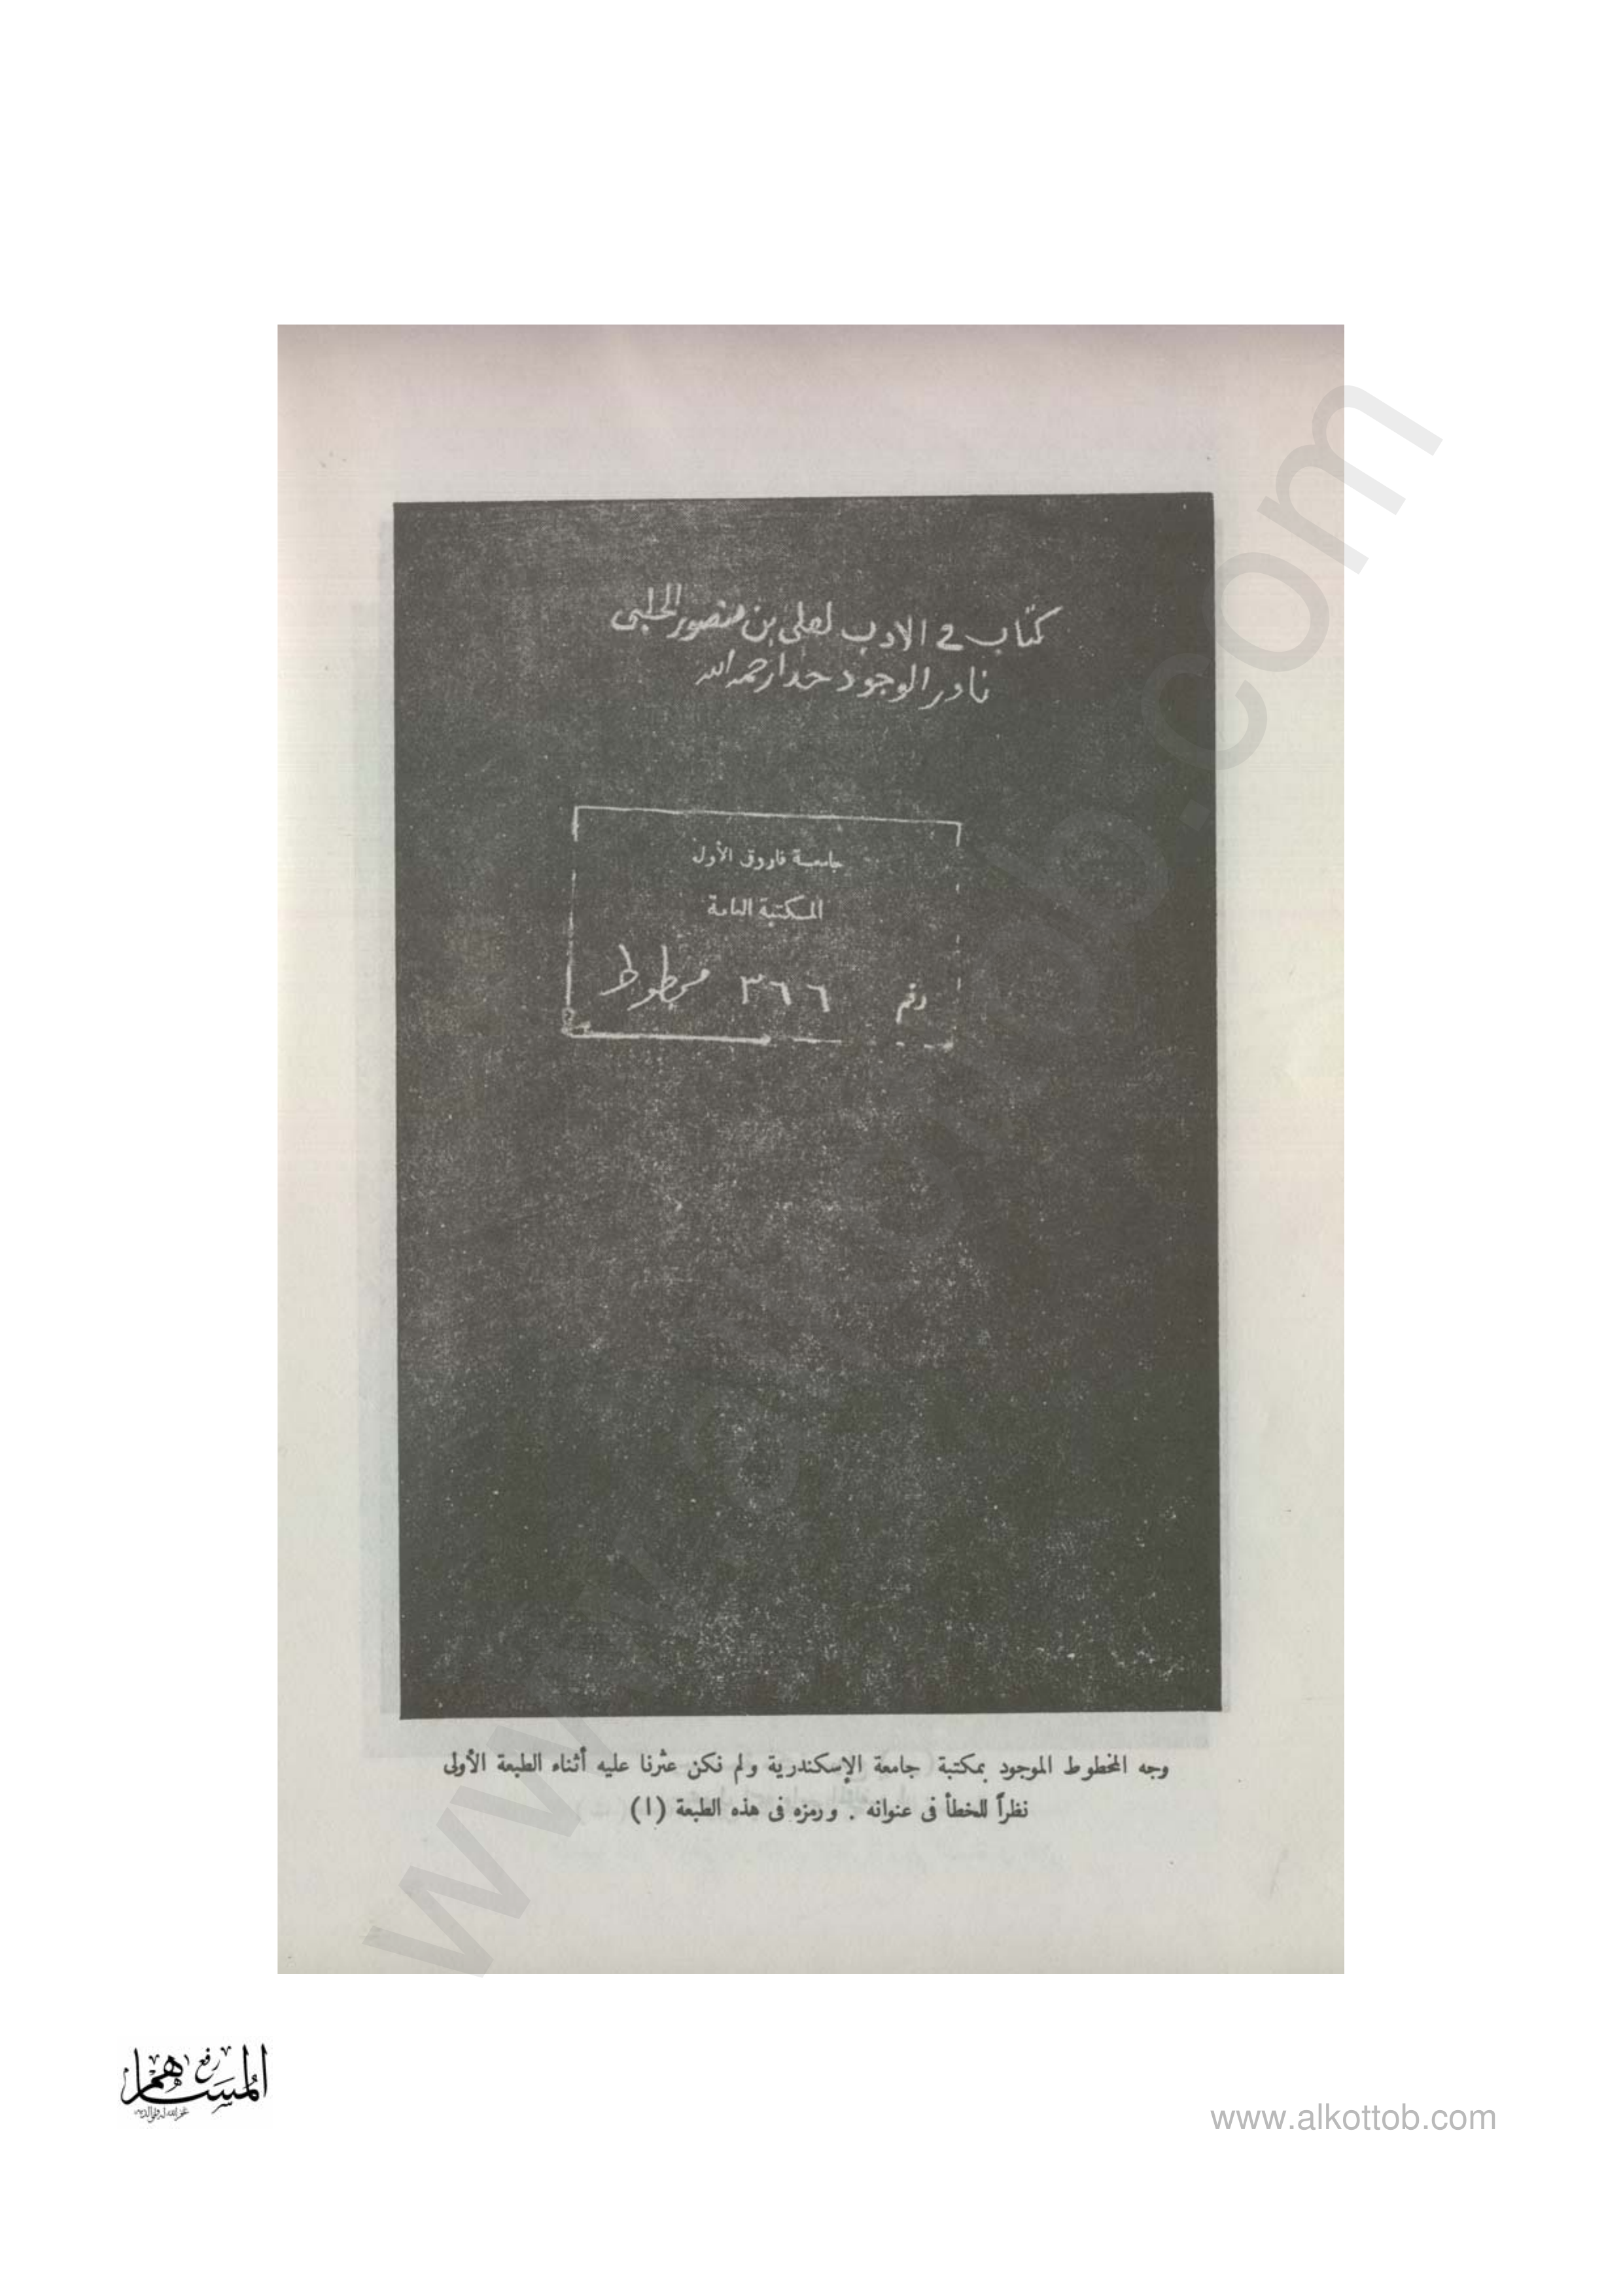 كتاب في الادب لعلى بن منصور الحلبى
نادر الوجود جدا رحمه الله
جامعة فاروق الأول
المكتبة العامة
رقم ٣٦٦ مخطوط
وجه المخطوط الموجود بمكتبة جامعة الإسكندرية ولم نكن عثرنا عليه أثناء الطبعة الأولى
نظراً للخطأ فى عنوانه . ورمزه فى هذه الطبعة (ا)
رفع
المساهم
غفر الله له ولوالديه
www.alkottob.com
www.alkottob.com